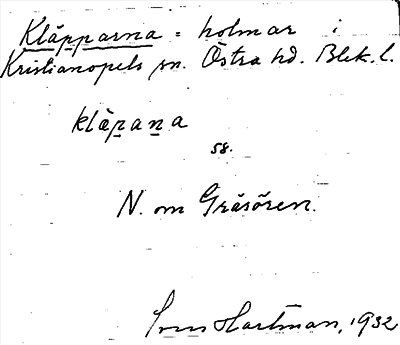 Kläpparna = holmar i
Kristianopels sn. Östra hd. Blek. l.
klæ̀pa̠na
ss.
N. om Gräsören.
Sven Hartman, 1932